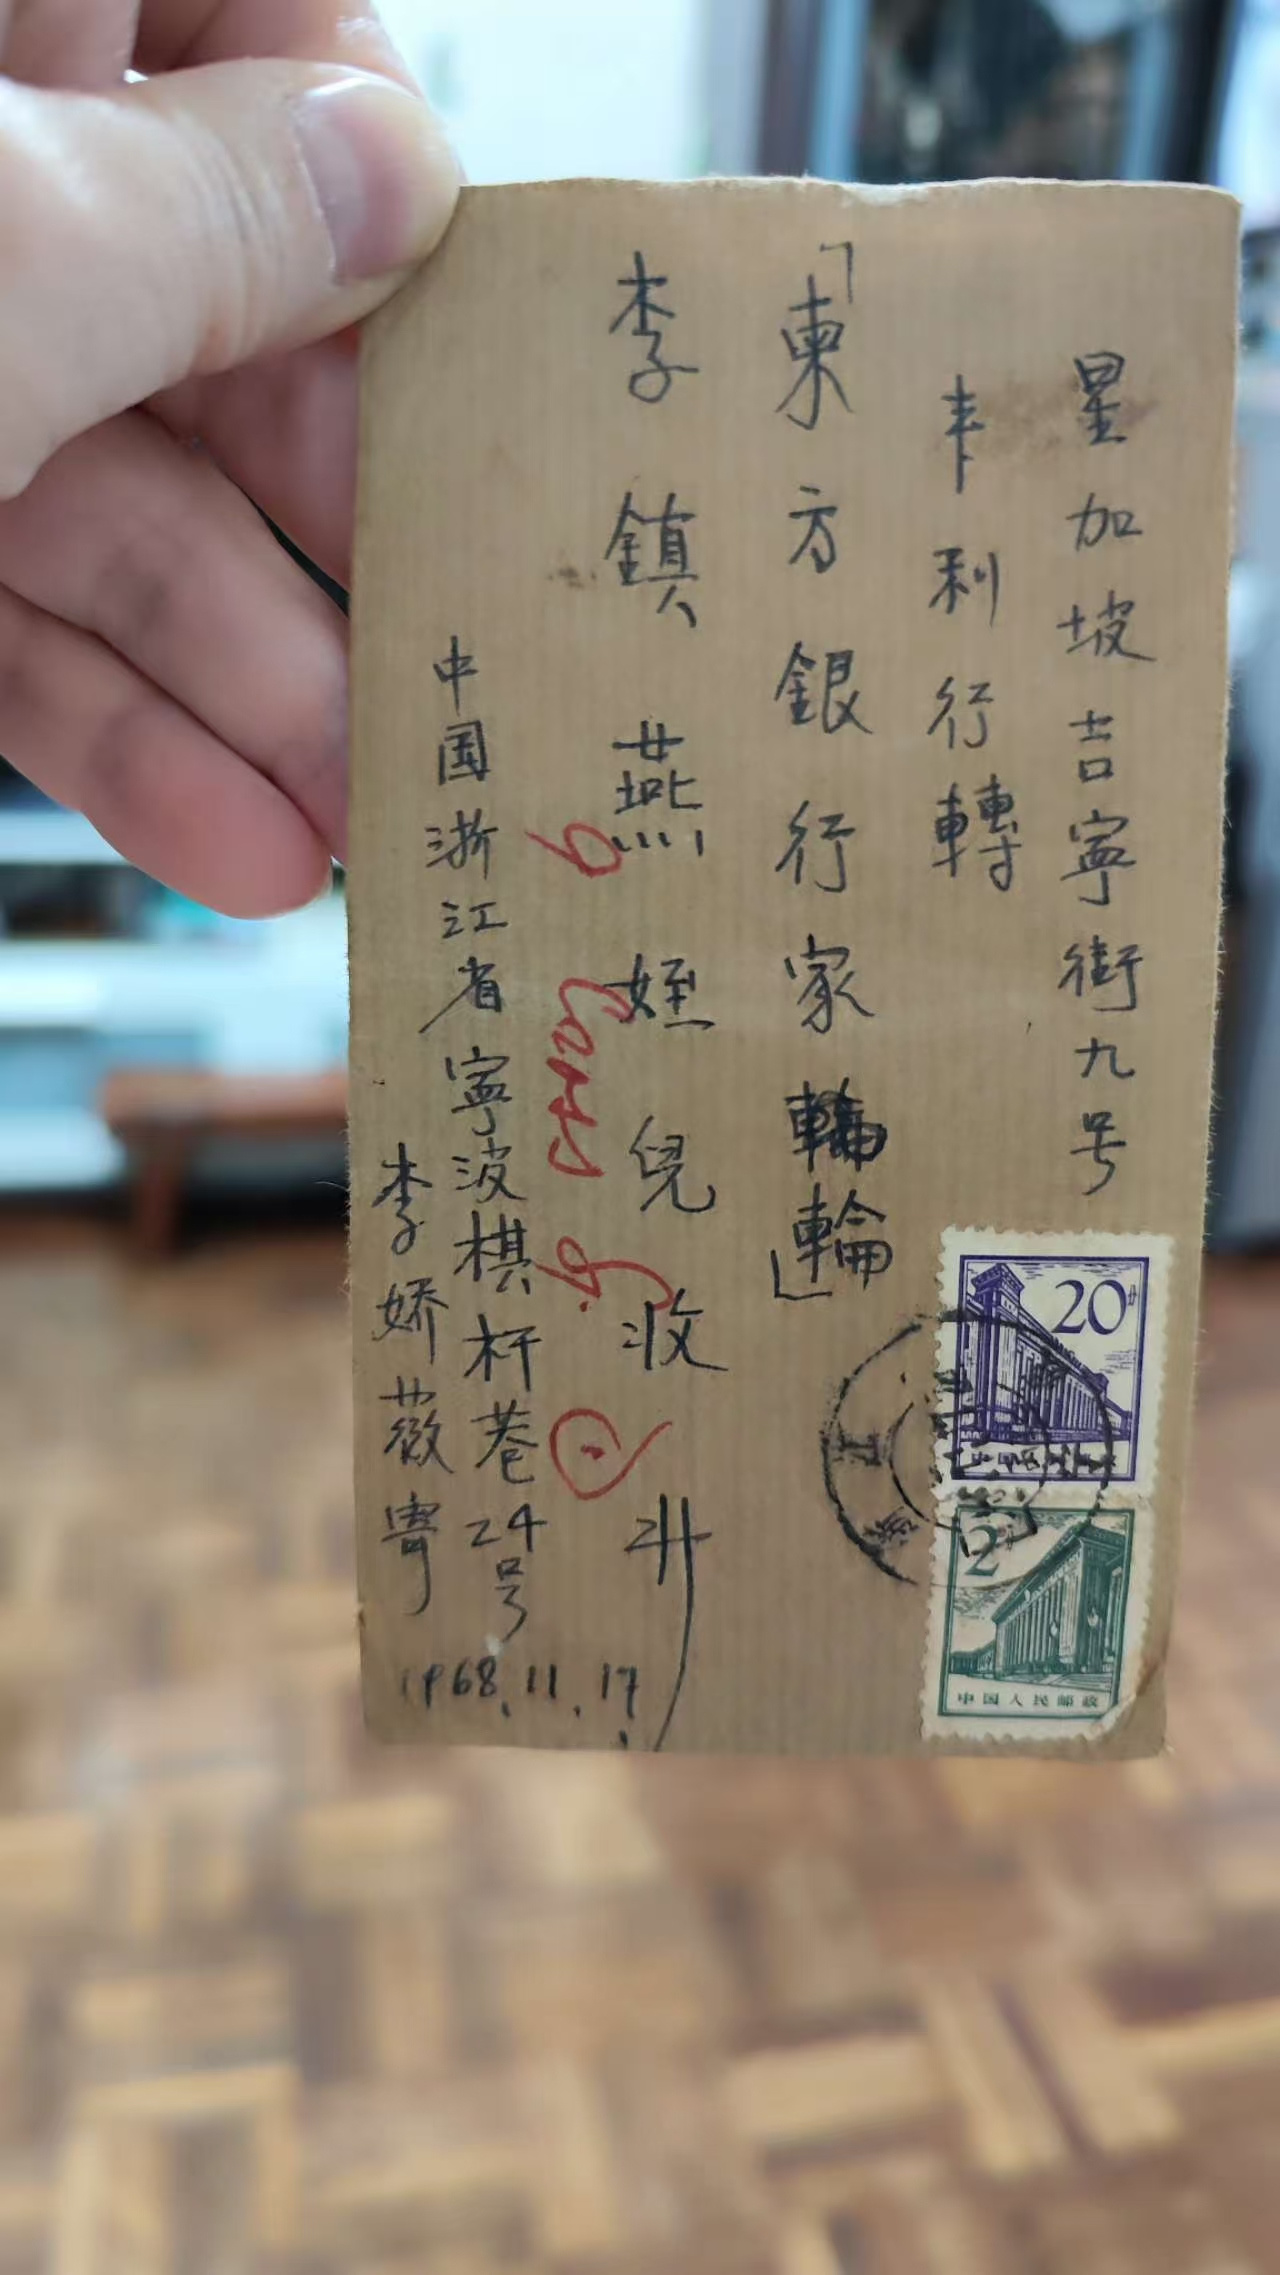 星加坡吉寧街九号
丰利行轉
「東方銀行家輪輪」
李鎮燕姪兒收升
中国浙江省寧波棋杆巷24号
李娇薇寄
1968.11.17
20分
2分
中国人民邮政